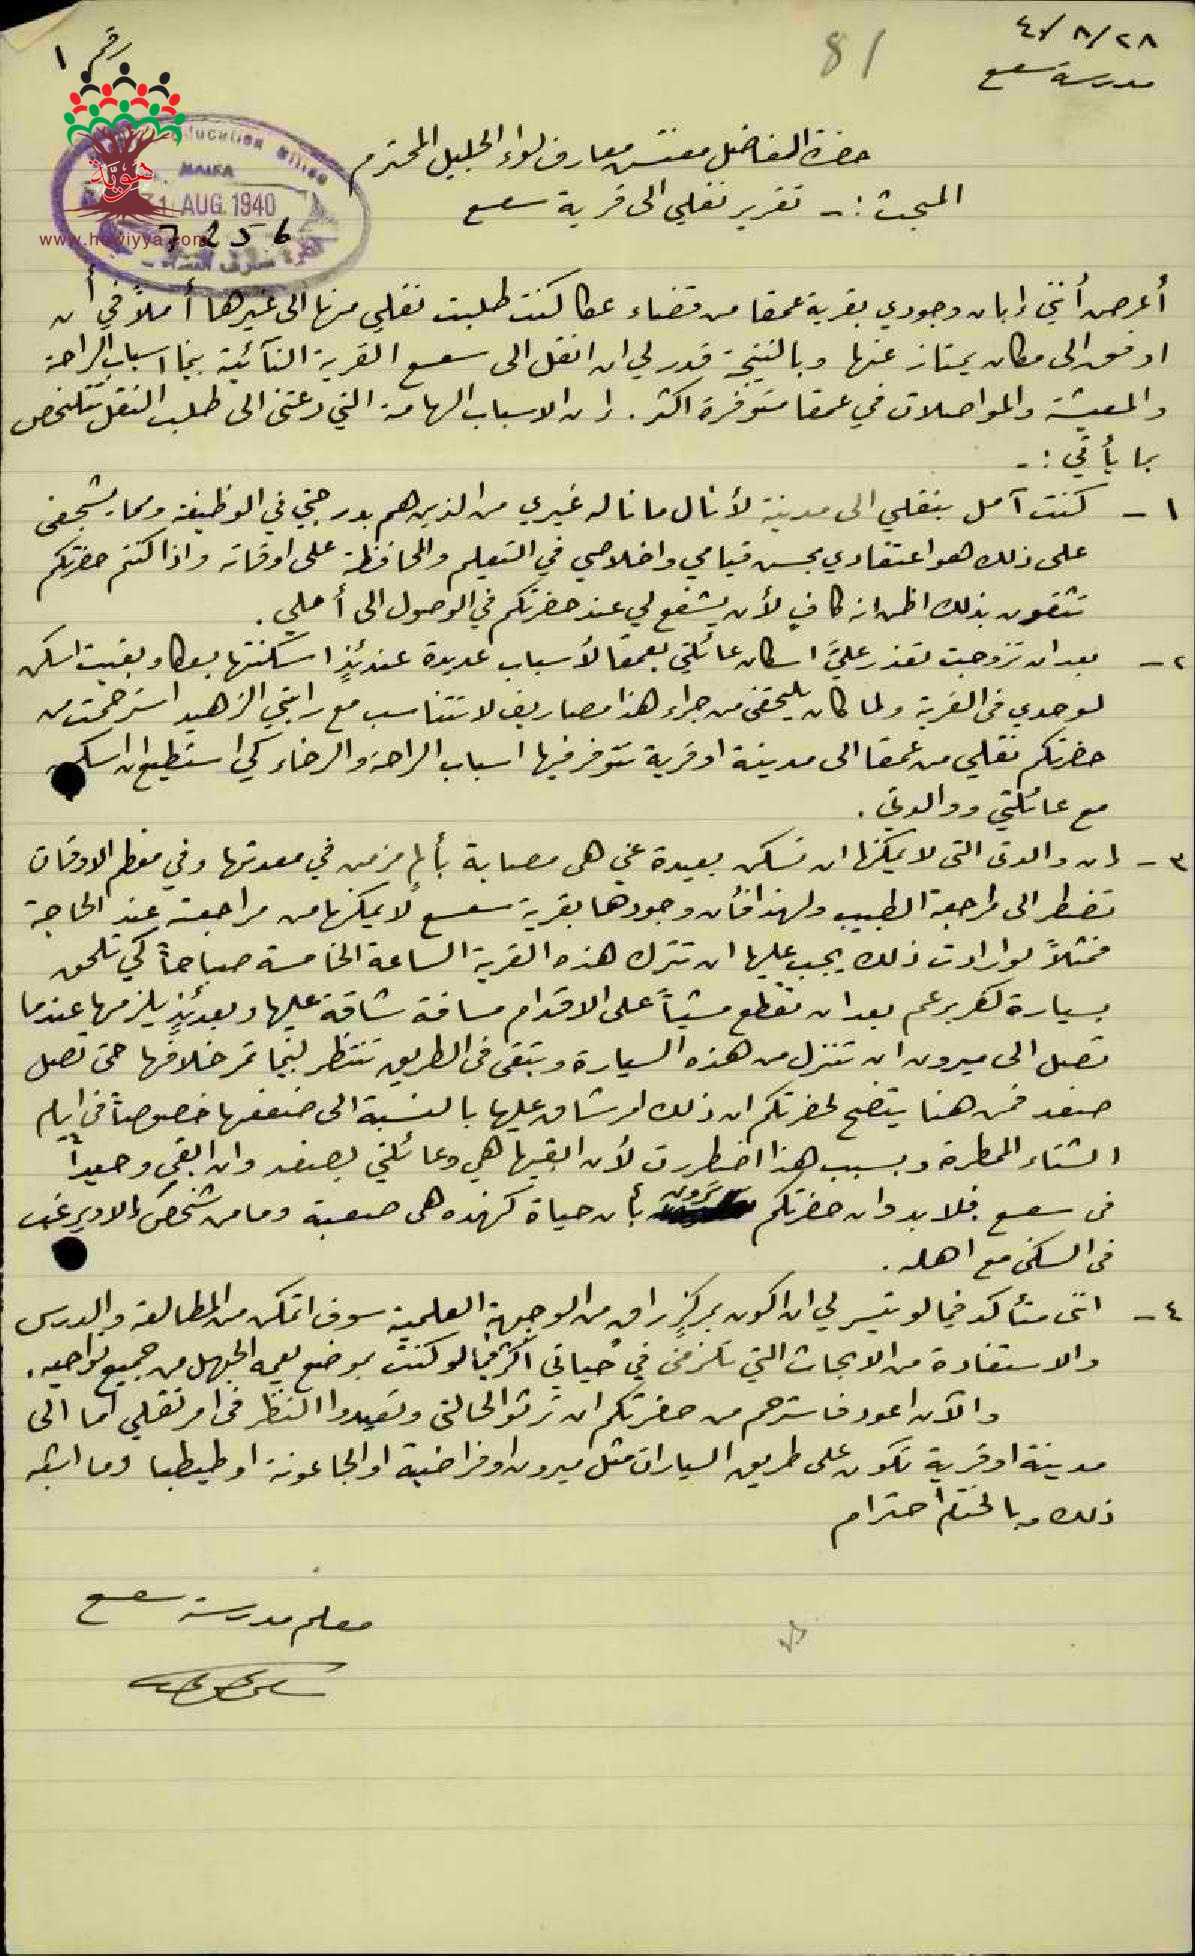 ٢٨/٨/٤٠
مدرسة سعسع
رقم ١
81
هوية
Education Office
HAIFA
31 AUG. 1940
7256
www.howiyya.com
حضرة الفاضل مفتش معارف لواء الجليل المحترم
المبحث :- تقرير نقلي الى قرية سعسع
أعرض أنني إبان وجودي بقرية عمقا من قضاء عكا كنت طلبت نقلي منها الى غيرها أملاً في أن
اوفق الى مكان يمتاز عنها وبالنتيجة قدر لي ان انقل الى سعسع القرية النآئية بينما اسباب الراحة
والمعيشة والمواصلات في عمقا متوفرة اكثر . إن الاسباب الهامة التي دعتني الى طلب النقل تتلخص
بما يأتي :-
١- كنت آمل بنقلي الى مدينة لأنال ما ناله غيري من الذين هم بدرجتي في الوظيفة ومما يشجعني
على ذلك هو اعتقادي بحسن قيامي واخلاصي في التعليم والمحافظة على اوقاته واذا كنتم حضرتكم
تثقون بذلك اظن انه كافٍ لأن يشفع لي عند حضرتكم في الوصول الى أملي .
٢- بعد ان تزوجت تعذر عليَّ اسكان عائلتي بعمقا لأسباب عديدة عندئذٍ اسكنتها بعكا وبقيت اسكن
لوحدي في القرية ولما كان يلحقني من جراء هذا مصاريف لا تتناسب مع راتبي الزهيد استرحمت من
حضرتكم نقلي من عمقا الى مدينة او قرية تتوفر فيها اسباب الراحة والرخاء كي استطيع ان اسكن
مع عائلتي ووالدتي .
٣- إن والدتي التي لا يمكنها ان تسكن بعيدة عني هي مصابة بألم مزمن في معدتها وفي معظم الاوقات
تضطر الى مراجعة الطبيب ولهذا فأن وجودها بقرية سعسع لا يمكنها من مراجعته عند الحاجة
فمثلاً لو ارادت ذلك يجب عليها ان تترك هذه القرية الساعة الخامسة صباحاً كي تلحق
بسيارة كفر برعم بعد ان تقطع مشياً على الاقدام مسافة شاقة عليها وبعدئذٍ يلزمها عندما
تصل الى ميرون ان تنزل من هذه السيارة وتبقى في الطريق تنتظر لبينما تمر خلافها حتى تصل
صفد فمن هنا يتضح لحضرتكم ان ذلك امر شاق عليها بالنسبة الى ضعفها خصوصاً في ايام
الشتاء الممطرة وبسبب هذا اضطررت لأن ابقيها هي وعائلتي بصفد وان ابقى وحيداً
في سعسع فلا بد وان حضرتكم ترون بأن حياة كهذه هي صعبة وما من شخص إلا ويرغب
في السكنى مع اهله .
٤- انني متأكد فيما لو تيسر لي ان اكون بمركزٍ راقٍ من الوجهة العلمية سوف اتمكن من المطالعة والدرس
والاستفادة من الابحاث التي تلزمني في حياتي اكثر فيما لو كنت بموضع يعمه الجهل من جميع نواحيه .
والآن اعود فاسترحم من حضرتكم ان ترثوا لحالتي وتعيدوا النظر في امر نقلي اما الى
مدينة او قرية تكون على طريق السيارات مثل ميرون او فراضية او الجاعونة او طيطبا وما اشبه
ذلك وبالختام احترام
معلم مدرسة سعسع